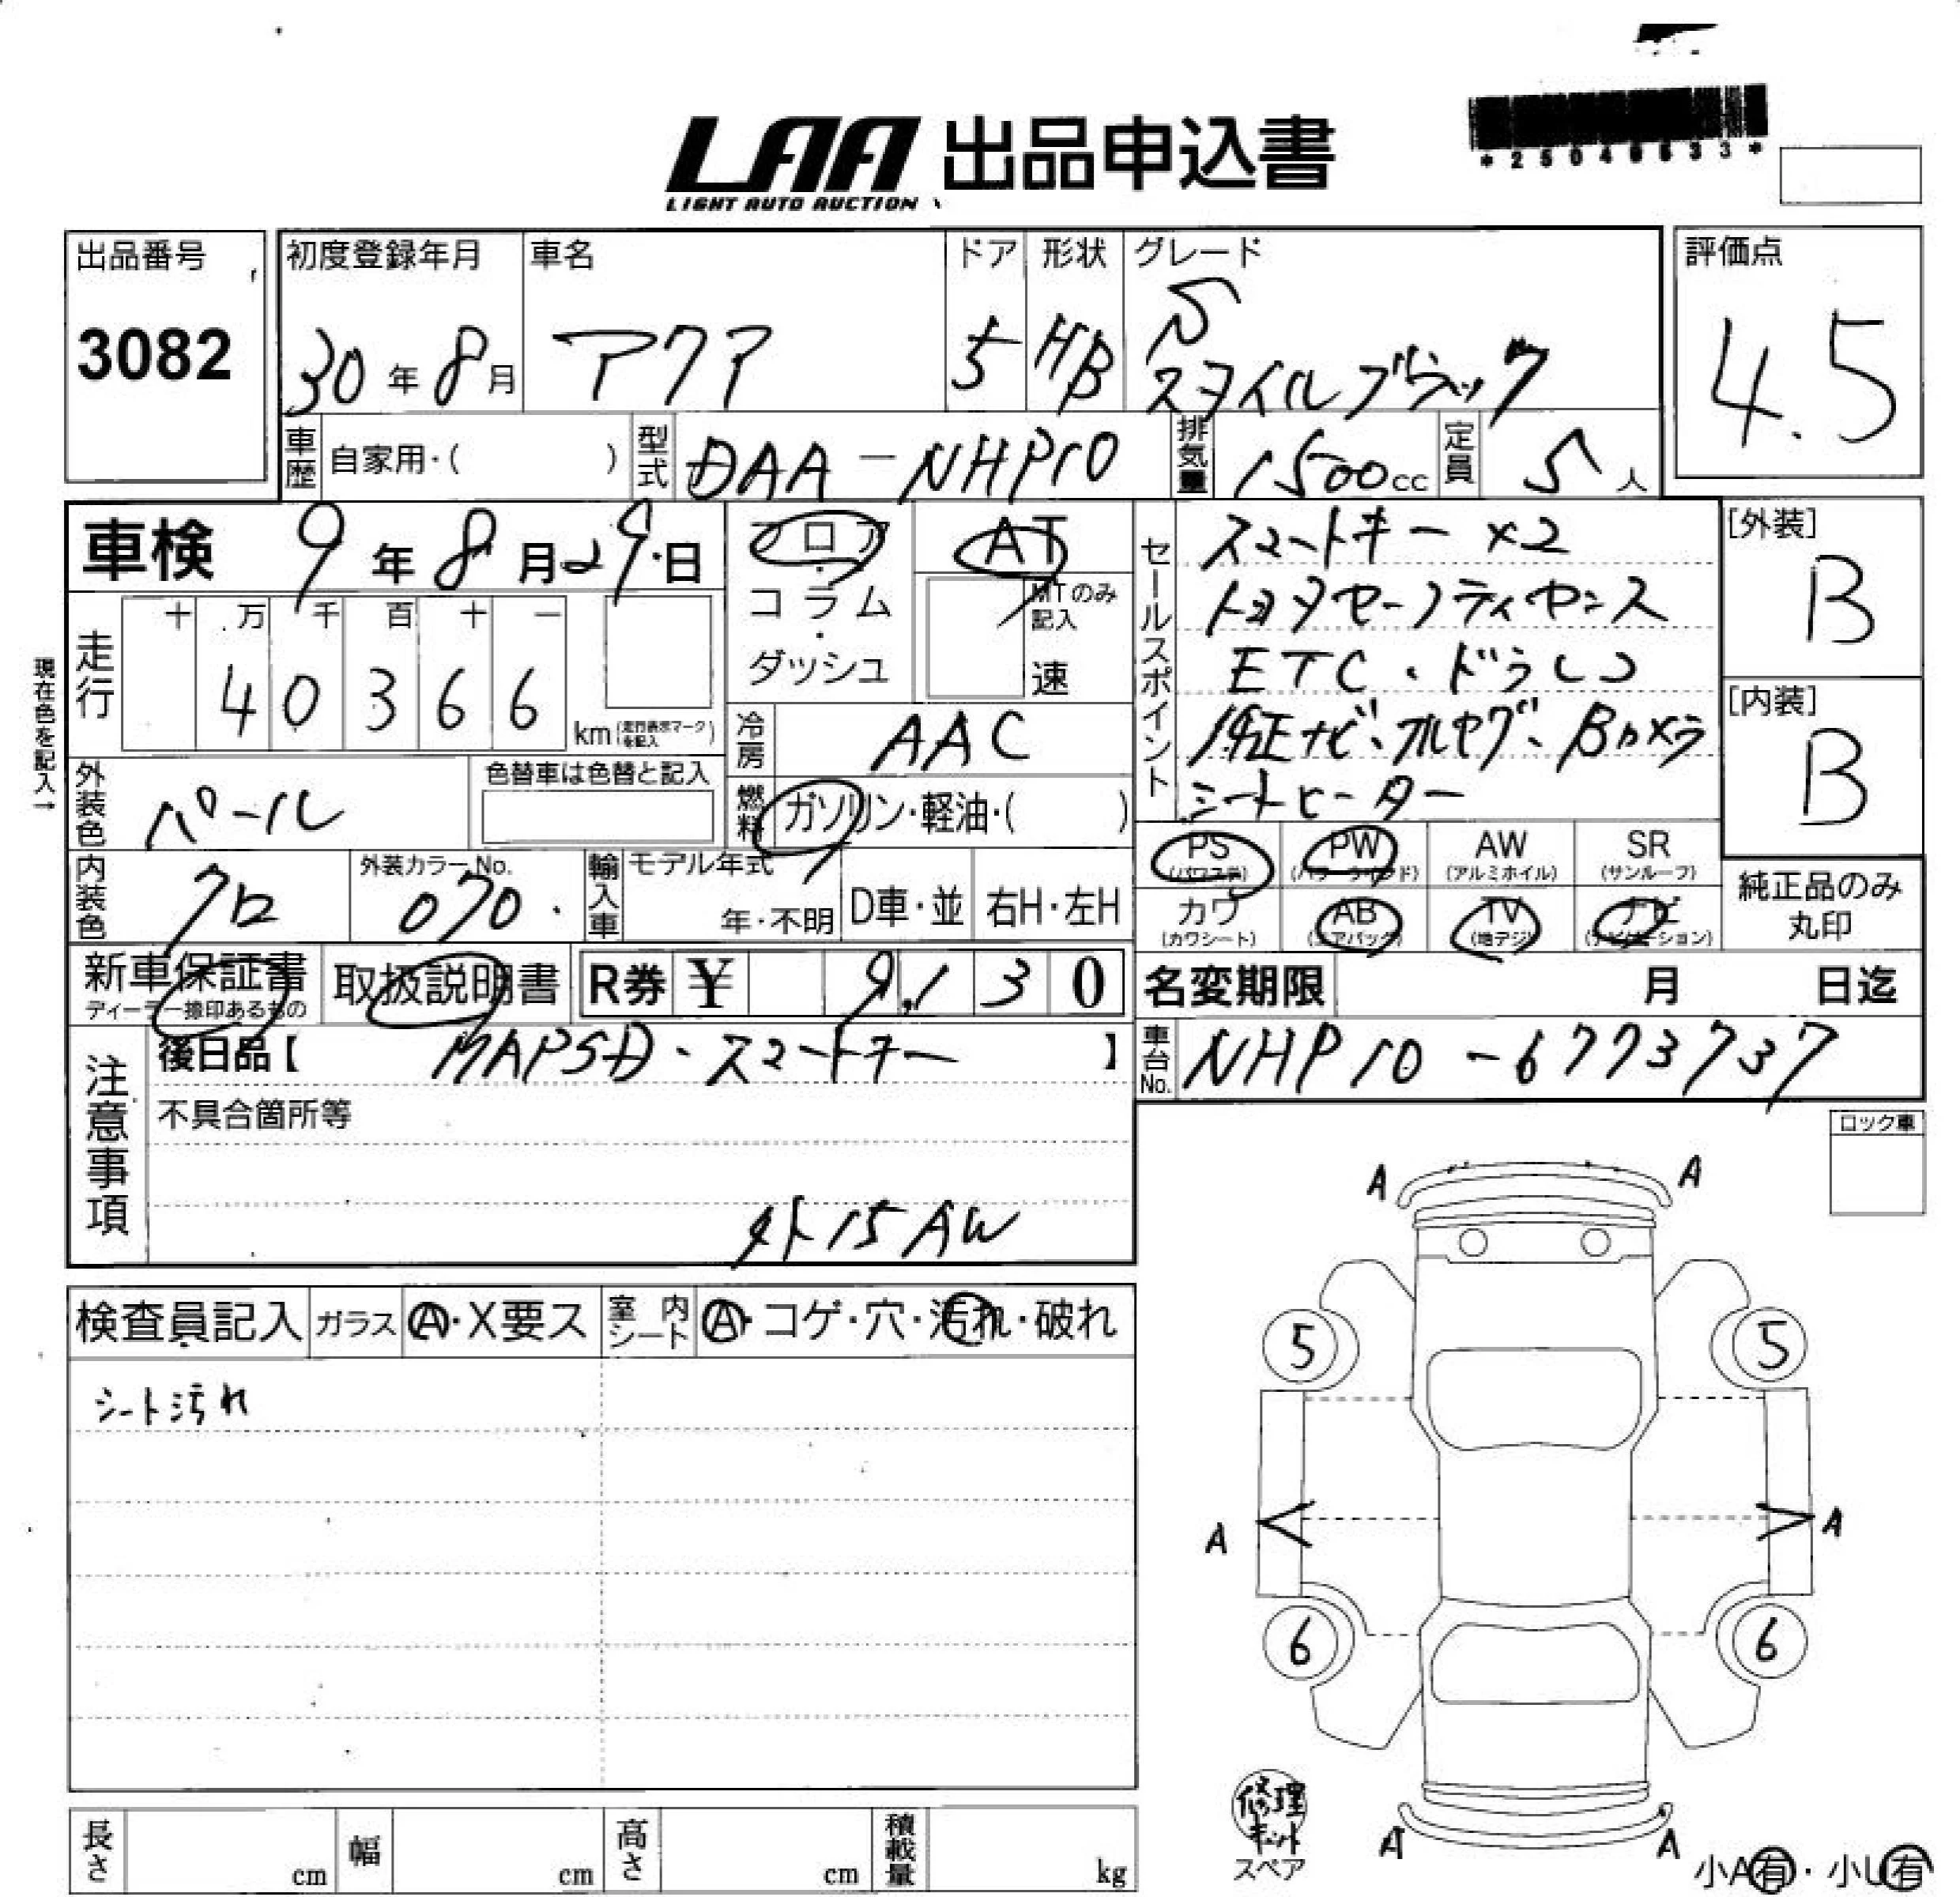 LAA 出品申込書
LIGHT AUTO AUCTION
出品番号
3082
初度登録年月
30年8月
車名
アクア
ドア
5
形状
HB
グレード
S
スタイルブラック
評価点
4.5
車歴
自家用・( )
型式
DAA-NHP10
排気量
1500cc
定員
5人
車検 9年8月29日
フロア・コラム・ダッシュ
AT
MTのみ記入
速
セールスポイント
スマートキー×2
トヨタセーフティセンス
ETC・ドラレコ
純正ナビ、フルセグ、Bカメラ
シートヒーター
[外装]
B
[内装]
B
現在色を記入→
走行
十 万 千 百 十 一
4 0 3 6 6
km(走行表示マークを記入)
冷房
AAC
外装色
パール
色替車は色替と記入
燃料
ガソリン・軽油・( )
内装色
クロ
外装カラーNo.
070.
輸入車
モデル年式
年・不明
D車・並
右H・左H
PS
(パワステ)
PW
(パワーウインド)
AW
(アルミホイル)
SR
(サンルーフ)
カワ
(カワシート)
AB
(エアバック)
TV
(地デジ)
ナビ
(ナビゲーション)
純正品のみ
丸印
新車保証書
ディーラー捺印あるもの
取扱説明書
R券 ¥ 9,130
名変期限 月 日迄
車台No.
NHP10-6773737
注意事項
後日品【 MAPSD・スマートキー 】
不具合箇所等
外15AW
ロック車
検査員記入
ガラス
A・X要ス
室内シート
A・コゲ・穴・汚れ・破れ
シート汚れ
A A
5 5
A A
6 6
A A
修理キット
スペア
小A有・小U有
長さ cm
幅 cm
高さ cm
積載量 kg